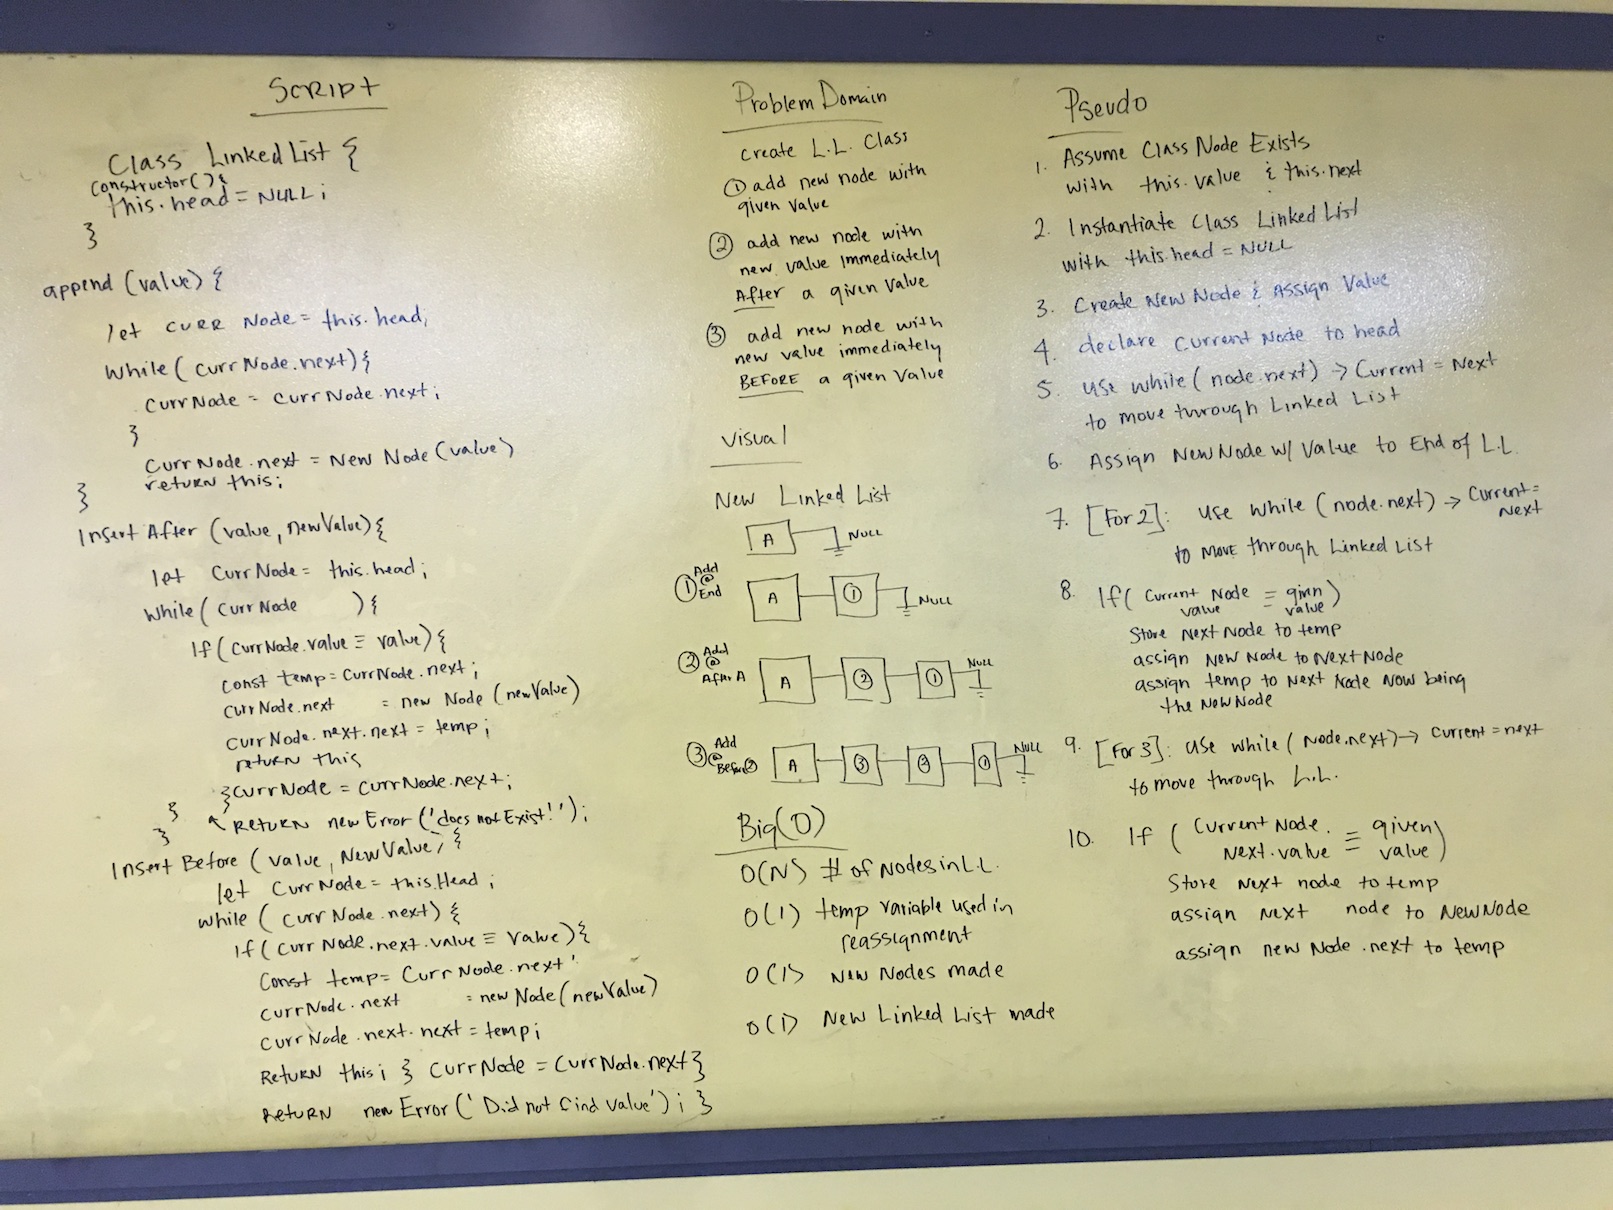 Script
Class Linked List {
constructor() {
this.head = NULL;
}
append (value) {
let curr Node = this.head;
while (currNode.next) {
currNode = currNode.next;
}
currNode.next = New Node (value)
return this;
}
Insert After (value, newValue) {
let currNode = this.head;
while (currNode ) {
If (currNode.value ≡ value) {
const temp = currNode.next;
currNode.next = new Node (newValue)
currNode.next.next = temp;
return this
}currNode = currNode.next;
}
RETURN new Error ('does not Exist!');
}
Insert Before (value, NewValue) {
let CurrNode = this.Head;
while (currNode.next) {
If (currNode.next.value ≡ value) {
Const temp = CurrNode.next;
currNode.next = new Node (newValue)
currNode.next.next = temp;
RETURN this; } currNode = CurrNode.next }
RETURN new Error ('Did not find value'); }
Problem Domain
Create L.L. Class
① add new node with
given value
② add new node with
new value immediately
After a given value
③ add new node with
new value immediately
BEFORE a given value
Visual
New Linked List
A NULL
① Add @ End A ① NULL
② Add @ After A A ② ① NULL
③ Add @ Before ② A ③ ② ① NULL
Big(O)
O(N) # of Nodes in L.L.
O(1) temp variable used in
reassignment
O(1) New Nodes made
O(1) New Linked List made
Pseudo
1. Assume Class Node Exists
with this.value & this.next
2. Instantiate Class Linked List
with this.head = NULL
3. Create New Node & Assign Value
4. declare Current Node to head
5. Use while (node.next) → Current = Next
to move through Linked List
6. Assign NewNode w/ Value to End of L.L.
7. [For 2]: Use while (node.next) → Current =
Next
to move through Linked List
8. If ( Current Node ≡ given )
value value
Store Next Node to temp
assign New Node to Next Node
assign temp to Next Node Now being
the New Node
9. [For 3]: Use while (Node.next) → Current = next
to move through L.L.
10. If ( Current Node. ≡ given )
Next.value value
Store Next node to temp
assign Next node to NewNode
assign new Node.next to temp